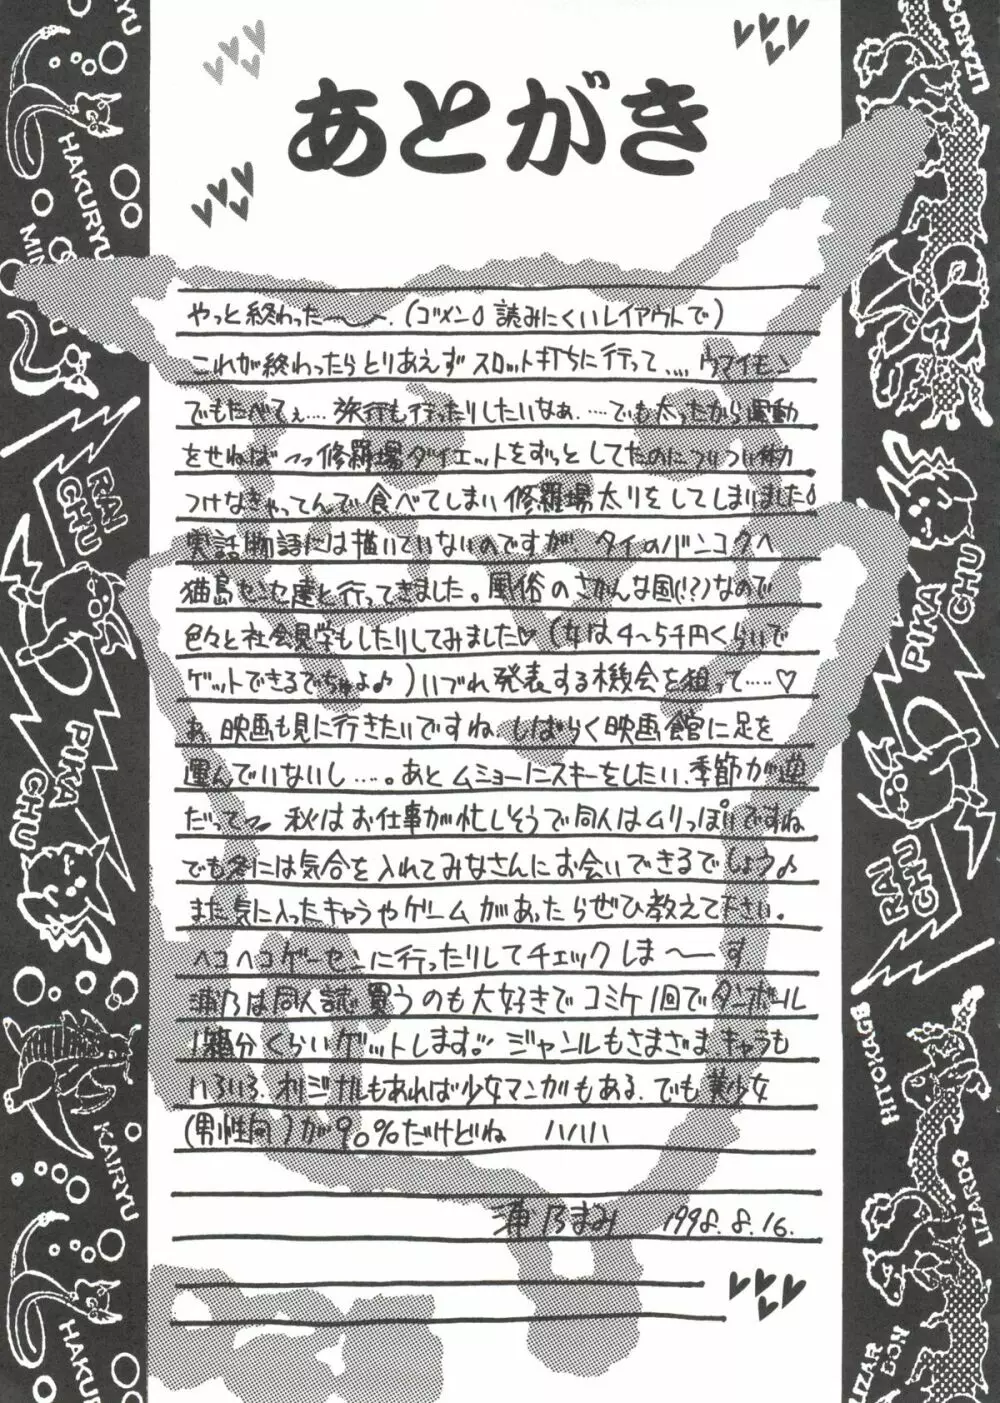 あとがき
やっと終わった〜〜。(ゴメン 読みにくいレイアウトで)
これが終わったらとりあえずスロット打ちに行って、、、、ウマイモン
でもたべてぇ....旅行も行ったりしたいなぁ.....でも太ったから運動
をせねば〜っ修羅場ダイエットをずっとしてたのについつい体力
つけなきゃってんで食べてしまい修羅場太りをしてしまいました
実話物語には描いていないのですが、タイのバンコクへ
猫島センセ達と行ってきました。風俗のさかんな国(!?)なので
色々と社会見学もしたりしてみました♡(女は4〜5千円くらいで
ゲットできるでちゅよ♪)いづれ発表する機会を狙って.....♡
あ、映画も見に行きたいですね、しばらく映画館に足を
運んでいないし....。あとムショーにスキーをしたい、季節が逆
だってーっ 秋はお仕事が忙しそうで同人はムリっぽいですね
でも冬には気合を入れてみなさんにお会いできるでしょう♪
また気に入ったキャラやゲームがあったらぜひ教えて下さい。
ヘコヘコゲーセンに行ったりしてチェックしま〜〜す
浦乃は同人誌買うのも大好きでコミケ1回でダンボール
1箱分くらいゲットします!! ジャンルもさまざま、キャラも
いろいろ、オリジナルもあれば少女マンガもある、でも美少女
(男性向)が90%だけどね ハハハ
浦乃まみ 1998.8.16.
HAKURYU
MIN
RAI
CHU
PIKA
CHU
KAIRYU
HAKURYU
LIZARDO
PIKA
CHU
RAI
CHU
HITOKAGE
LIZARDO
LIZAR
DON